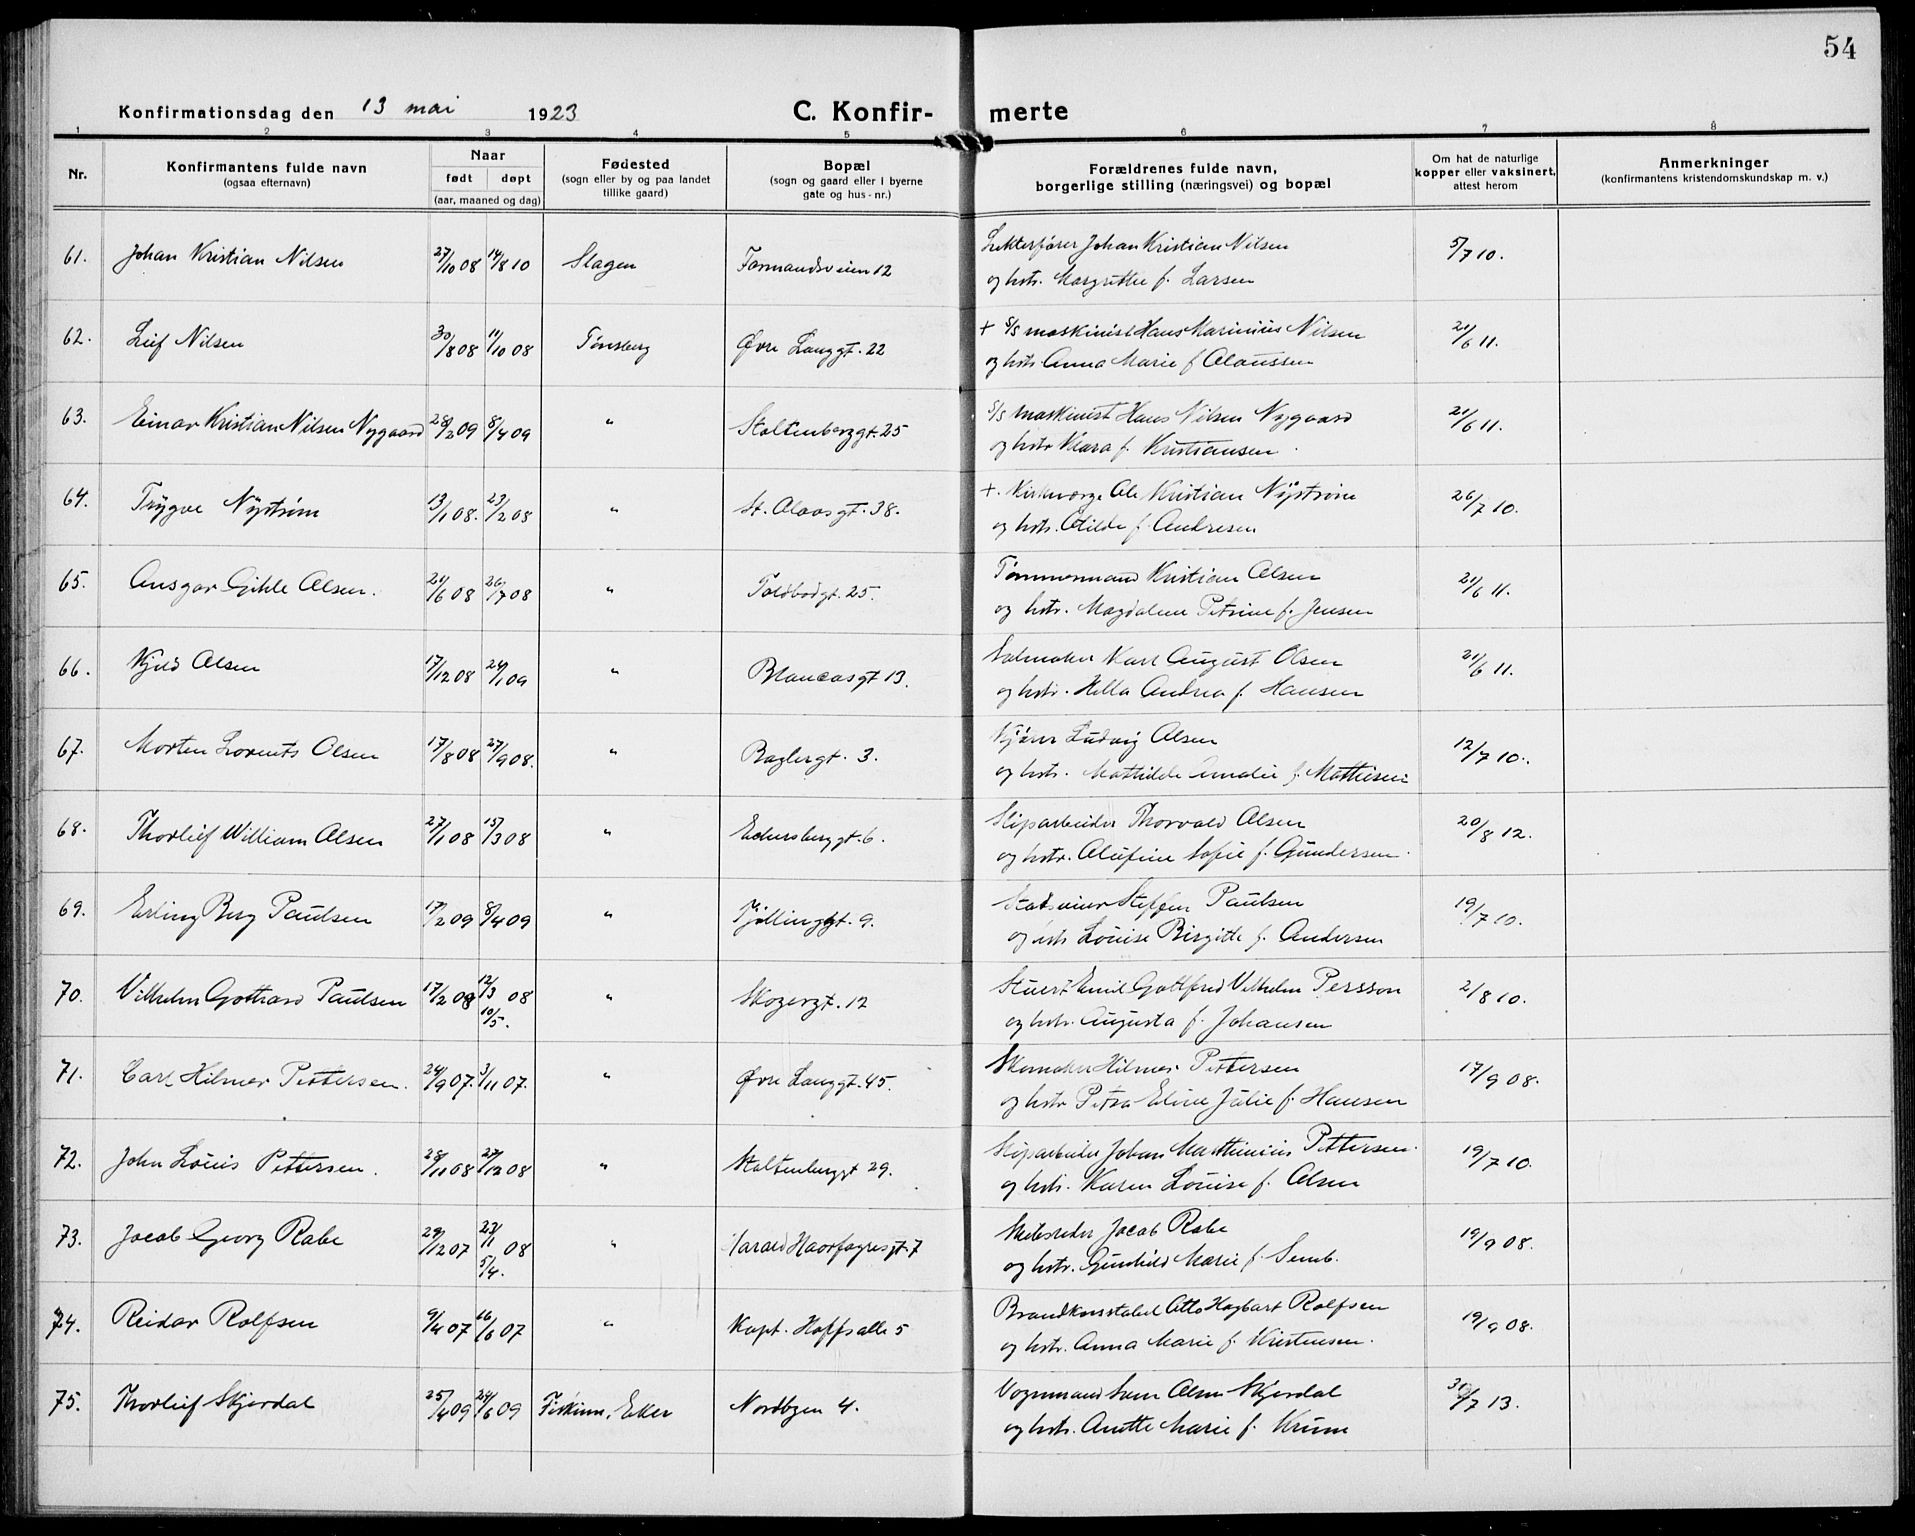 54
Konfirmationsdag den 13 mai 1923
C. Konfirmerte
1 2 3 4 5 6 7 8
Nr.
Konfirmantens fulde navn
(ogsaa efternavn)
Naar
født døpt
(aar, maaned og dag)
Fødested
(sogn eller by og paa landet
tillike gaard)
Bopæl
(sogn og gaard eller i byerne
gate og hus-nr.)
Forældrenes fulde navn,
borgerlige stilling (næringsvei) og bopæl
Om hat de naturlige
kopper eller vaksinert,
attest herom
Anmerkninger
(konfirmantens kristendomskundskap m. v.)
61. Johan Kristian Nilsen 27/10 08 14/8 10 Slagen Farmandsveien 12 Lekterfører Johan Kristian Nilsen 5/7 10.
og hstr. Margrethe f. Larsen
62. Leif Nilsen 30/8 08 11/10 08 Tønsberg Øvre Langgt. 22 + S/S maskinist Hans Marinius Nilsen 21/6 11.
og hstr. Anna Marie f. Olaussen
63. Einar Kristian Nilsen Nygaard 28/2 09 8/4 09 " Stoltenberggt. 25 S/S maskinist Hans Nilsen Nygaard 21/6 11.
og hstr Klara f. Kristiansen.
64. Trygve Nystrøm 13/1 08. 23/2 08 " St. Olavsgt. 38. +. Kirkeværge Ole Kristian Nystrøm 26/7 10.
og hstr. Otilde f. Andresen
65. Ansgar Gihle Olsen. 21/6 08 26/7 08 " Toldbodgt. 25. Tømmermand Kristian Olsen 21/6 11.
og hstr. Magdalene Petrine f. Jensen
66. Kjeld Olsen 17/12 08 24/1 09 " Blancasgt 13. Salmaker Karl August Olsen 21/6 11.
og hstr. Hella Andrea f. Hansen
67. Morten Lorents Olsen 17/8 08 27/9 08. " Baglergt. 3. Kjører Ludvig Olsen 12/7 10.
og hstr. Mathilde Amalie f. Mathisen
68. Thorleif William Olsen 27/1 08 15/3 08 " Eckersberggt. 6. Skipsarbeider Thorvald Olsen 20/8 12.
og hstr. Olufine Sofie f. Gundersen.
69. Erling Berg Paulsen 17/2 09 8/4 09 " Kjøllinggt. 9. Steffen Paulsen 19/7 10.
og hstr Louise Birgitte f. Andersen
70. Vilhelm Gothard Paulsen 17/2 08 12/3 08 " Skogergt. 12 Stuert Emil Gottfred Vilhelm Persson 2/8 10.
10/5.
og hstr. Augusta f. Johansen
71. Carl Hilmar Pettersen. 24/9 07. 3/11 07. " Øvre Langgt. 45. Skomaker Hilmar Pettersen 17/9 08.
og hstr Petra Eline Julie f. Hansen
72. John Louis Pettersen. 28/11 08 27/12 08 " Stoltenberggt 29. Skipsarbeider Johan Mathinius Pettersen. 19/7 10.
og hstr. Karen Louise f. Olsen
73. Jacob Georg Rabe 29/12 07 27/11 08 " Harald Haarfagresgt. 7 Skibsreder Jacob Rabe 19/9 08.
5/4.
og hstr. Gunhild Marie f. Semb.
74. Reidar Rolfsen 9/4 07 16/6 07 " Kapt. Hoffs alle 5 Brandkonstabel Otto Hagbart Rolfsen 19/9 08.
og hstr. Anna Marie f. Kristensen.
75. Thorleif Skjerdal 25/4 09 24/6 09 Fiskum, Eker Nordbyen 4. Vognmand Sven Olsen Skjerdal 31/7 13.
og hstr. Anette Marie f. Krum